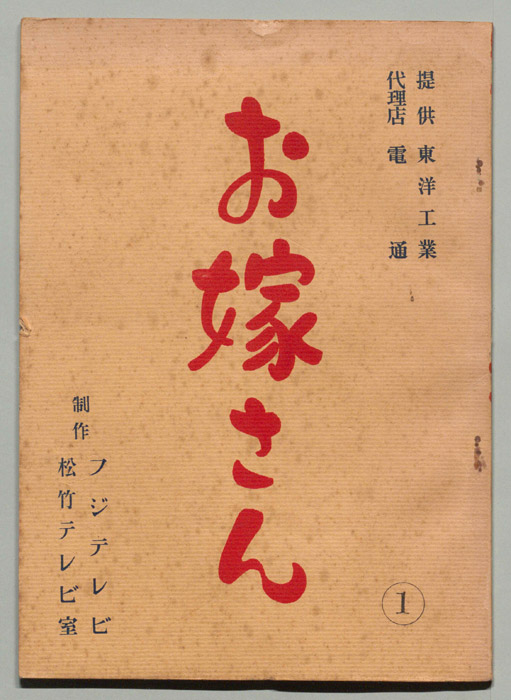 提供 東洋工業
代理店 電通
お嫁さん
制作 フジテレビ
松竹テレビ室
1